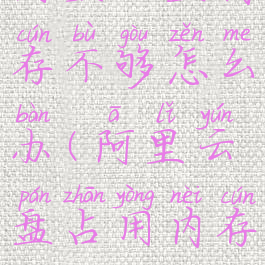 cún bù gòu zěn me
存不够怎么
bàn ā lǐ yún
办(阿里云
pán zhān yòng nèi cún
盘占用内存